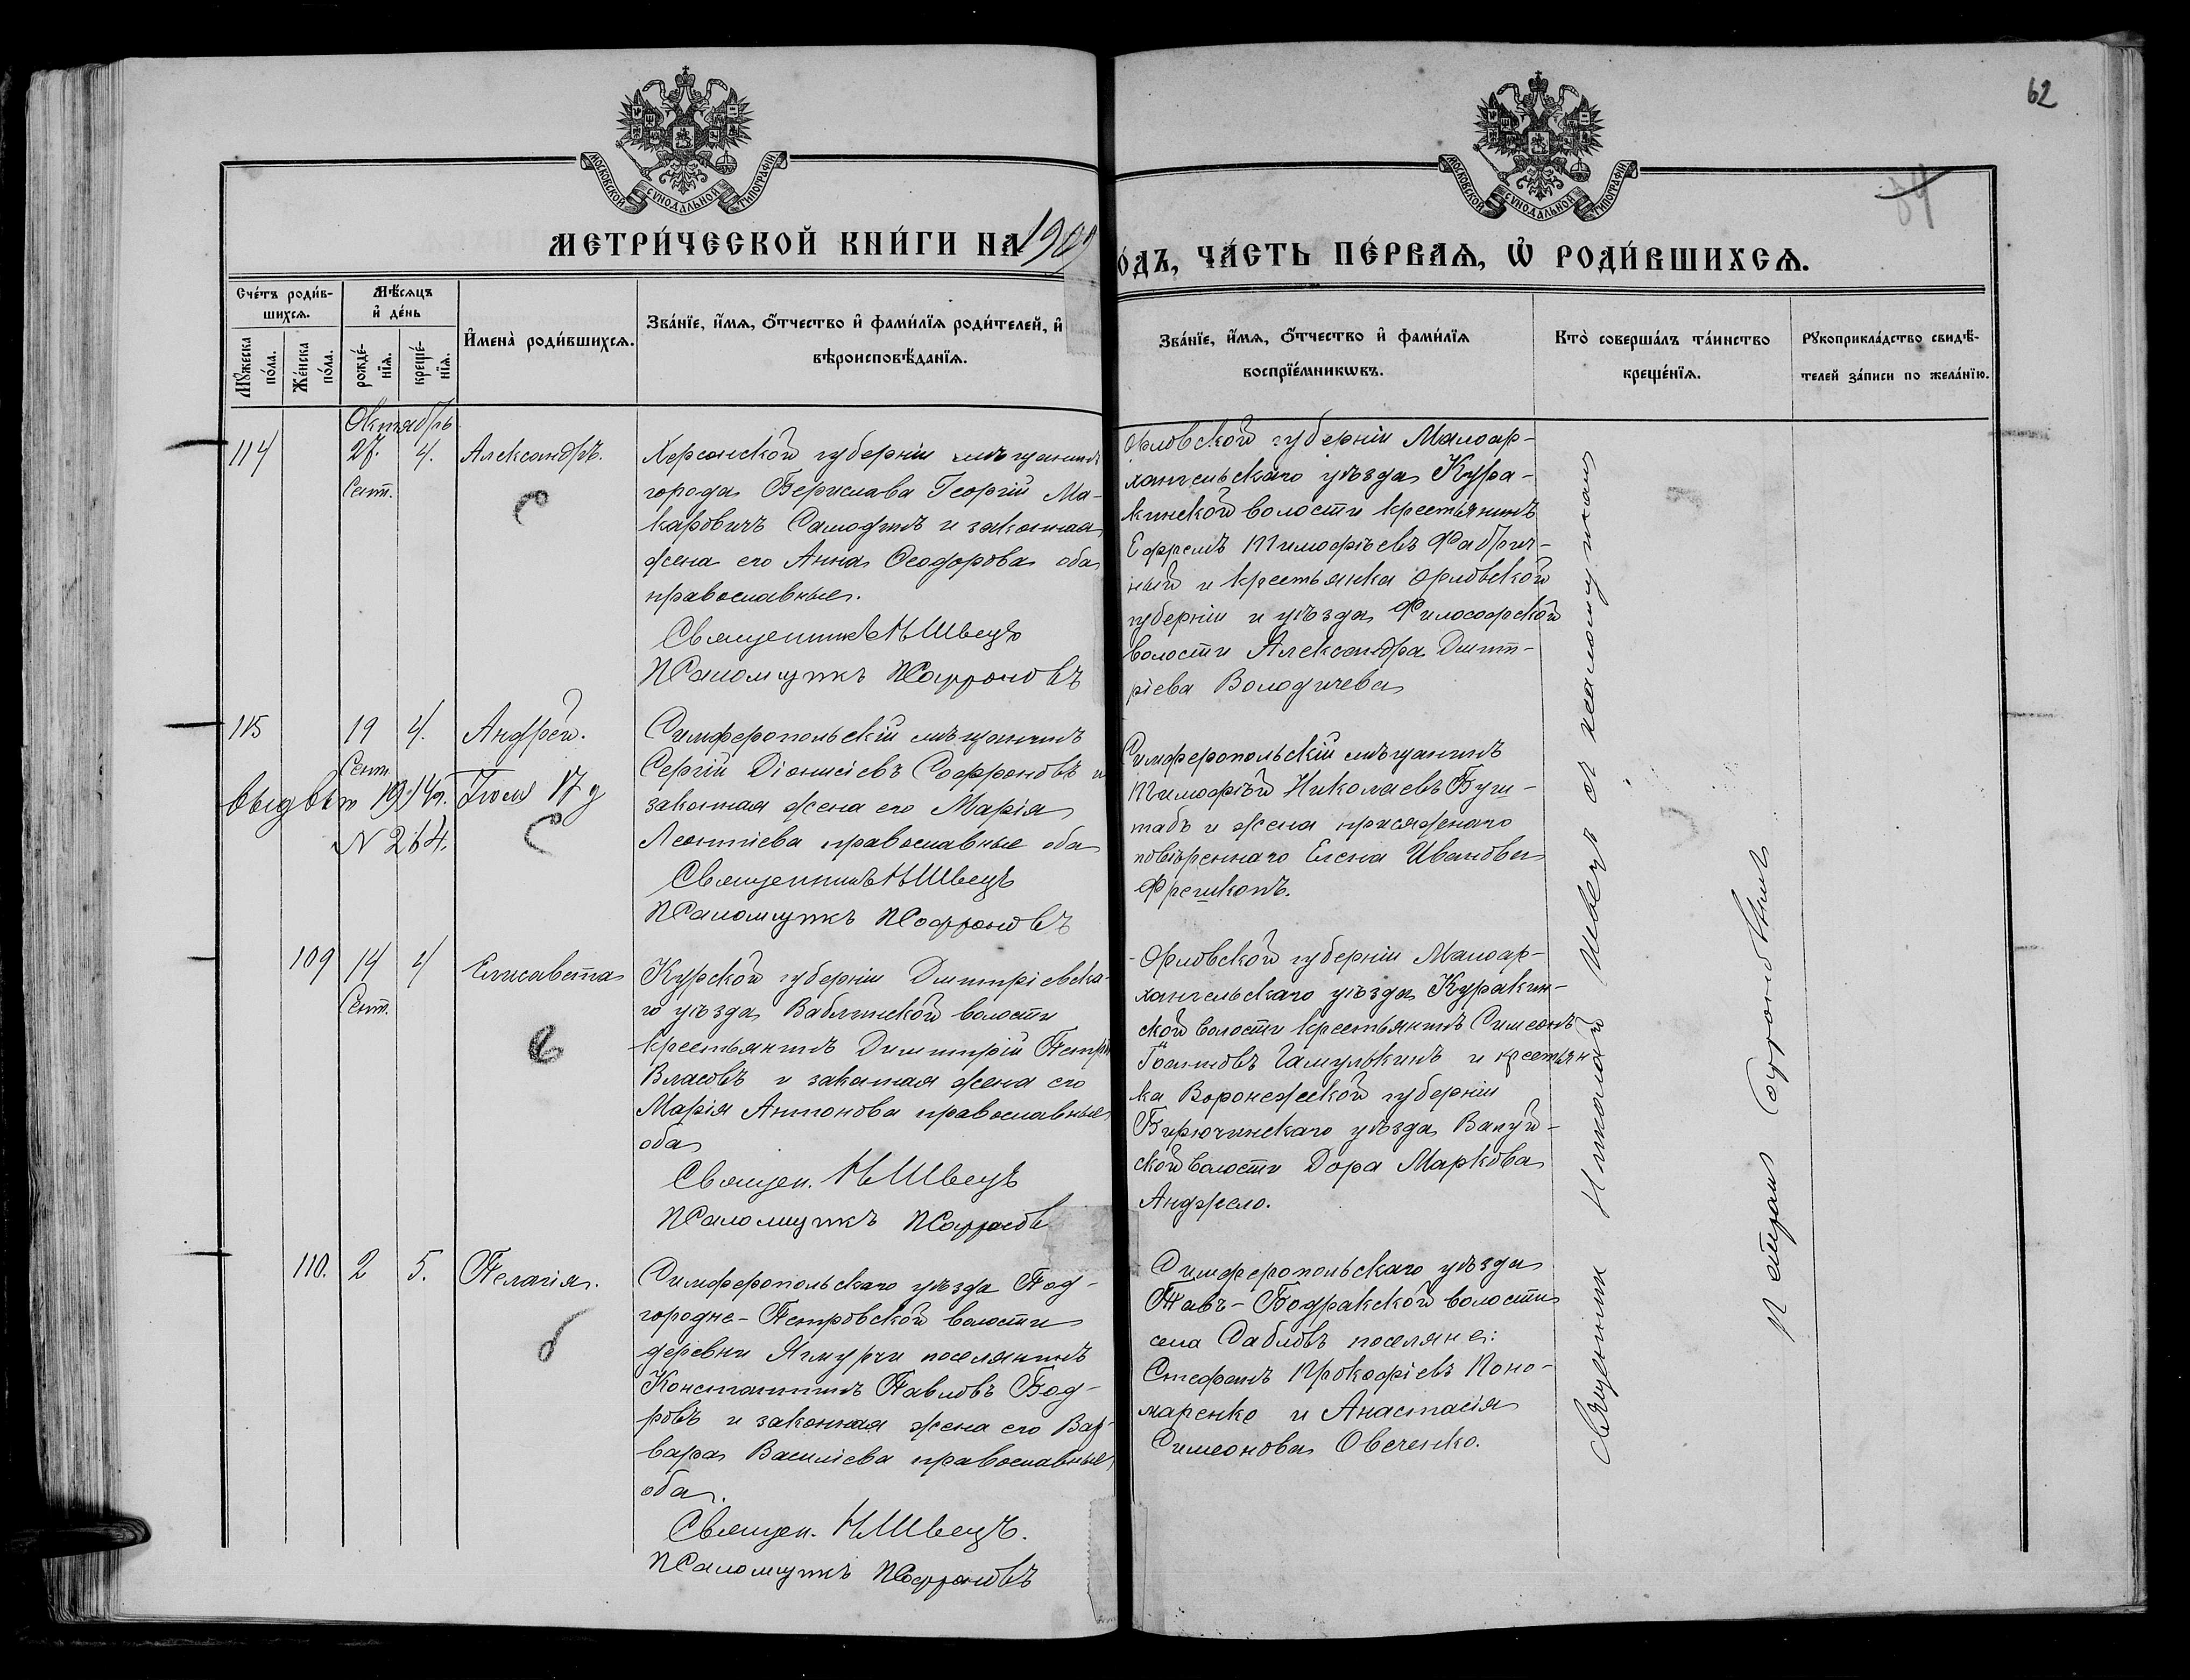 62
84
МОСКОВСКОЙ СѴНОДАЛЬНОЙ ТИПОГРАФІИ
МОСКОВСКОЙ СѴНОДАЛЬНОЙ ТИПОГРАФІИ
МЕТРИ́ЧЕСКОЙ КНИ́ГИ НА 1909
О́ДЪ, ЧА́СТЬ ПЕ́РВАѦ, Ѡ҆ РОДИ́ВШИХСѦ.
Сче́тъ роди́в-
шихсѧ.
Мꙋ́жеска по́ла.
Же́нска по́ла.
Мѣ́сѧцъ
и҆ де́нь
рожде́-
нїѧ.
креще́-
нїѧ.
И҆мена̀ роди́вшихсѧ.
Зва́нїе, и҆́мѧ, ѻ҆́тчество и҆ фами́лїѧ роди́телей, и҆
вѣроисповѣ́данїѧ.
Зва́нїе, и҆́мѧ, ѻ҆́тчество и҆ фами́лїѧ
воспрїе́мникѡвъ.
Кто̀ соверша́лъ та́инство
креще́нїѧ.
Рꙋкоприкла́дство свидѣ́-
телей за́писи по жела́нїю.
Октябрь
114 27. 4. Александръ.
Сент.
Херсонской губерніи мѣщанинъ
города Берислава Георгій Ма-
каровичъ Самодинъ и законная
жена его Анна Ѳеодорова оба
православные.
Священникъ Н Швецъ
Псаломщикъ П Софроновъ
Орловской губерніи Малоар-
хангельскаго уѣзда Кура-
кинской волости крестьянинъ
Ефремъ Тимофѣевъ Фабрич-
ный и крестьянка Орловской
губерніи и уѣзда Философской
волости Александра Димит-
ріева Володичева
115 19 4. Андрей.
Сент.
выд вып 1914 г. Іюля 17 д
N 264.
Симферопольскій мѣщанинъ
Сергій Діонисіевъ Софроновъ и
законная жена его Марія
Леонтіева православные оба
Священникъ Н Швецъ
Псаломщикъ П Софроновъ
Симферопольскій мѣщанинъ
Тимофѣй Николаевъ Буш-
табъ и жена присяжнаго
повѣреннаго Елена Иванова
Фрешкопъ.
109 14 4 Елисавета
Сент.
Курской губерніи Димитріевска-
го уѣзда Ваблинской волости
крестьянинъ Димитрій Петр
Власовъ и законная жена его
Марія Антонова православные
оба
Священ. Н Швецъ
Псаломщикъ П Софронов
Орловской губерніи Малоар-
хангельскаго уѣзда Куракин-
ской волости крестьянинъ Симеонъ
Іоанновъ Гамулькинъ и крестьян
ка Воронежской губерніи
Бирюченскаго уѣзда Валуй-
ской волости Дора Маркова
Анджело.
110. 2 5. Пелагія.
Симферопольскаго уѣзда Под-
городне-Петровской волости
деревни Ягмурчи поселянинъ
Константинъ Павловъ Бод-
ровъ и законная жена его Вар-
вара Василіева православные
оба.
Священ. Н Швецъ.
Псаломщикъ П Софроновъ
Симферопольскаго уѣзда
Тавъ-Бодракской волости
села Сабловъ поселяне:
Стефанъ Прокофіевъ Поно-
маренко и Анастасія
Симеонова Овченко.
Священник Николай Швецъ с псаломщикомъ
Петромъ Софроновымъ